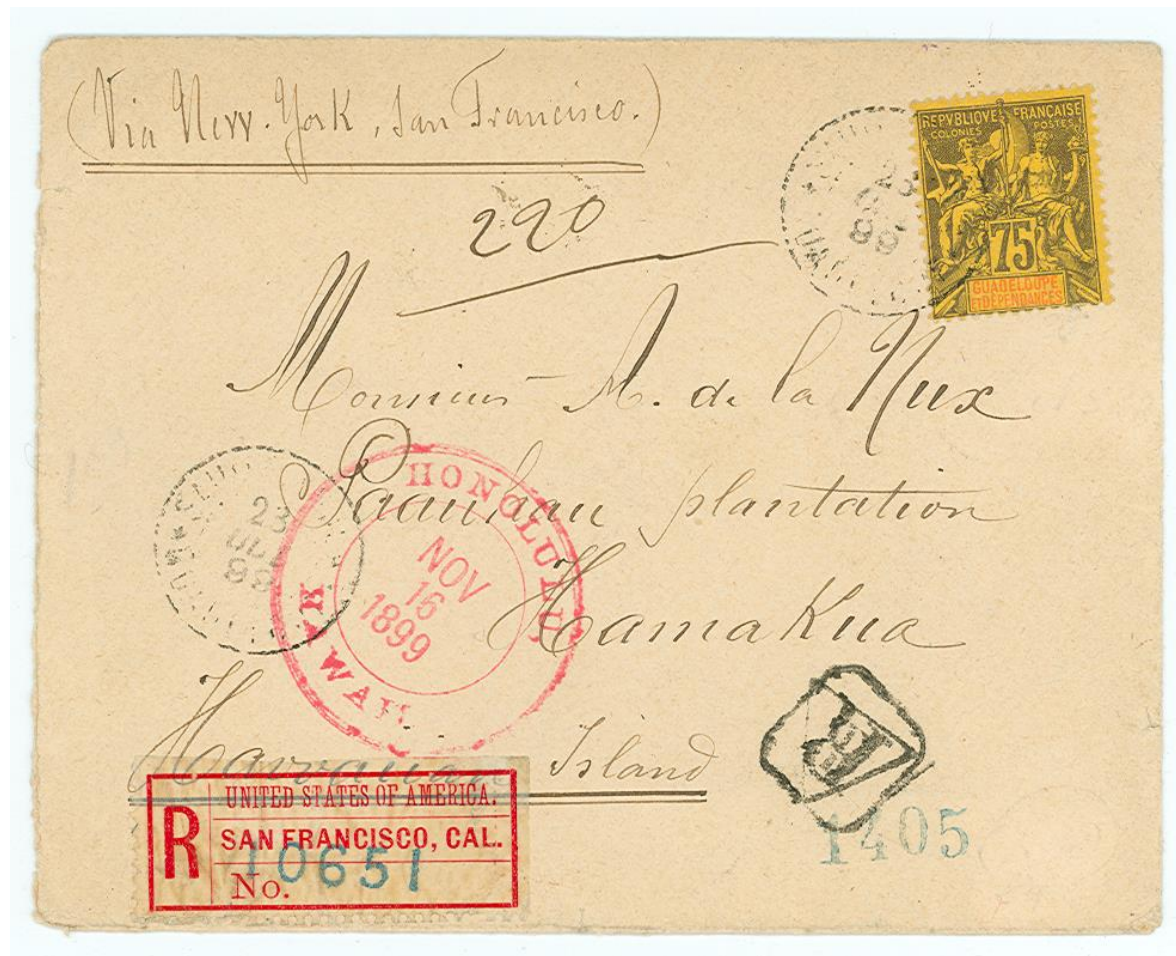 (Via New-York, San Francisco.)
REPVBLIQVE FRANÇAISE
COLONIES POSTES
75
GUADELOUPE
ET DÉPENDANCES
23
99
220
Monsieur A. de la Nux
Paauhau plantation
Hamakua
Hawaiian Island
23
OCT
99
HONOLULU,
NOV
16
1899
HAWAII
R
1405
R
UNITED STATES OF AMERICA.
SAN FRANCISCO, CAL.
No. 10651